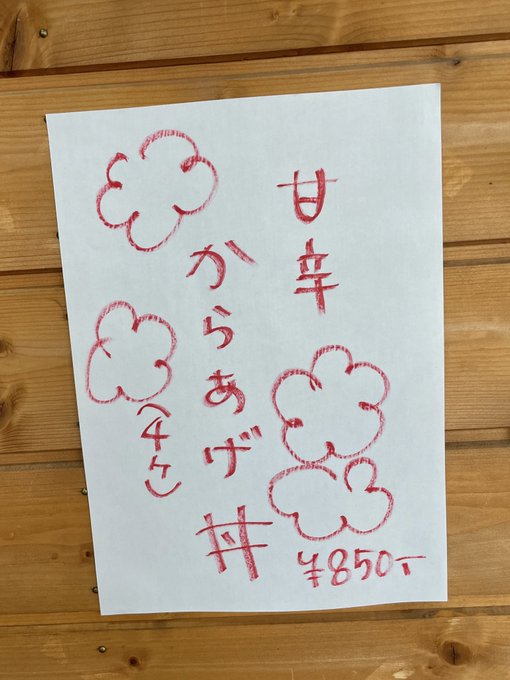 甘辛
からあげ丼
(チケ)
¥850-